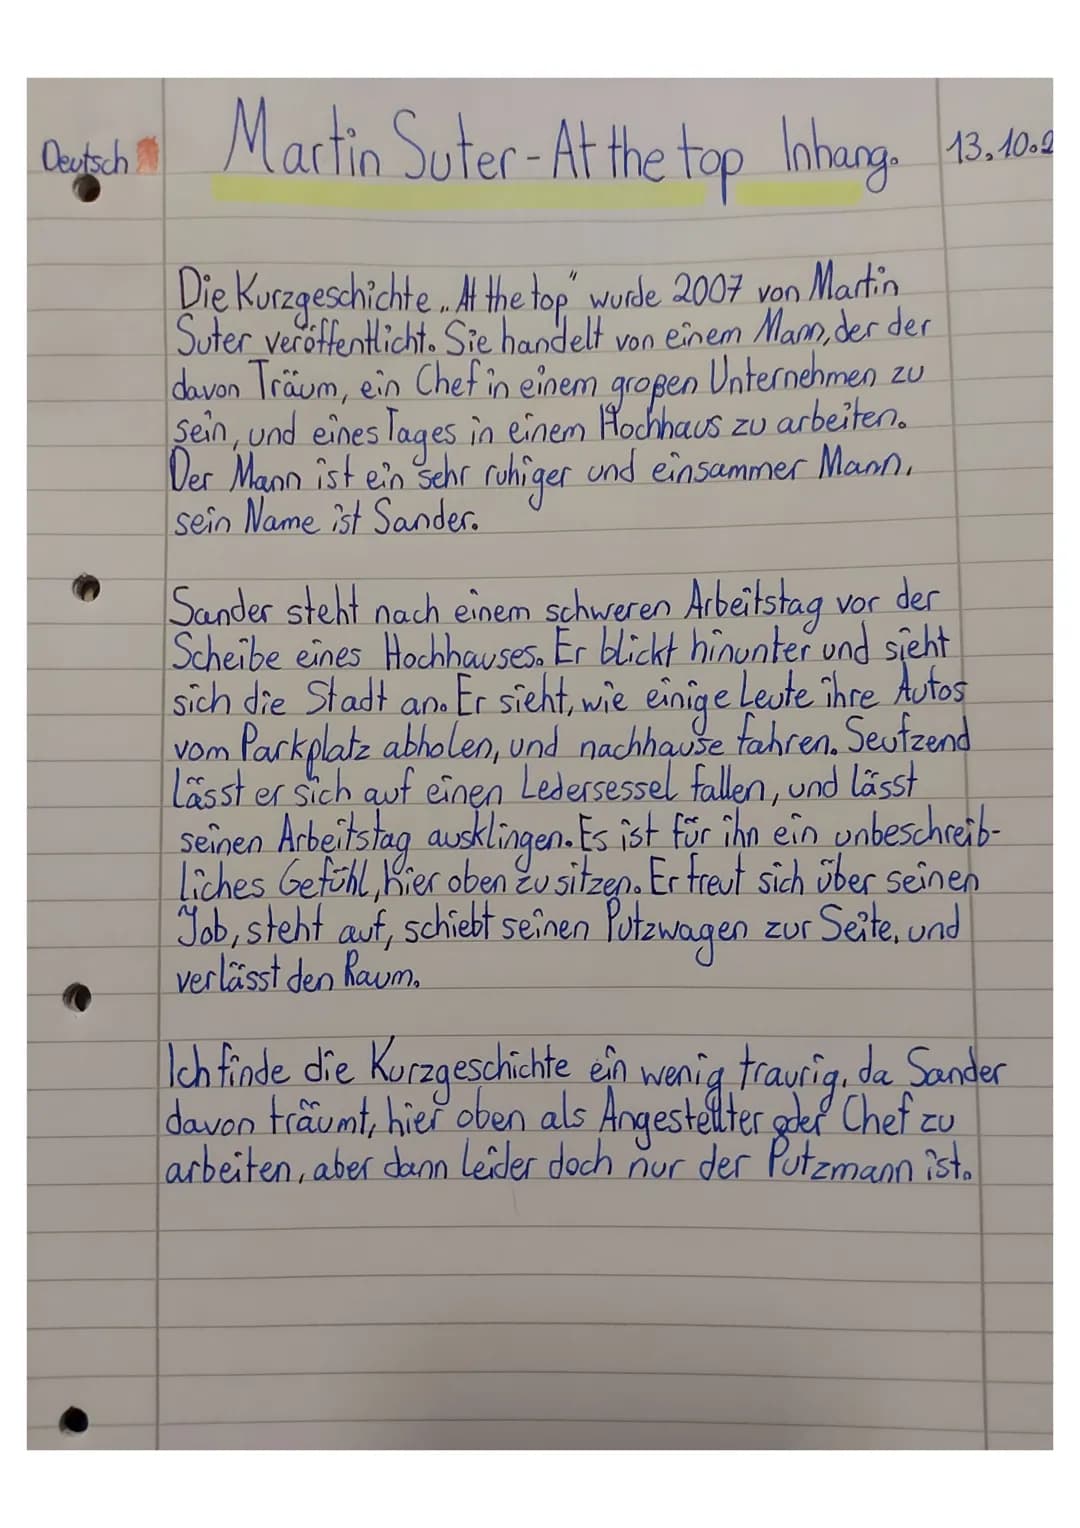 Deutsch
Martin Suter - At the top Inhang.
13.10.2
Die Kurzgeschichte „At the top" wurde 2007 von Martin
Suter veröffentlicht. Sie handelt von einem Mann, der der
davon Träum, ein Chef in einem großen Unternehmen zu
sein, und eines Tages in einem Hochhaus zu arbeiten.
Der Mann ist ein sehr ruhiger und einsammer Mann,
sein Name ist Sander.
Sander steht nach einem schweren Arbeitstag vor der
Scheibe eines Hochhauses. Er blickt hinunter und sieht
sich die Stadt an. Er sieht, wie einige Leute ihre Autos
vom Parkplatz abholen, und nachhause fahren. Seufzend
lässt er sich auf einen Ledersessel fallen, und lässt
seinen Arbeitstag ausklingen. Es ist für ihn ein unbeschreib-
liches Gefühl, hier oben zu sitzen. Er freut sich über seinen
Job, steht auf, schiebt seinen Putzwagen zur Seite, und
verlässt den Raum.
Ich finde die Kurzgeschichte ein wenig traurig, da Sander
davon träumt, hier oben als Angestellter oder Chef zu
arbeiten, aber dann leider doch nur der Putzmann ist.